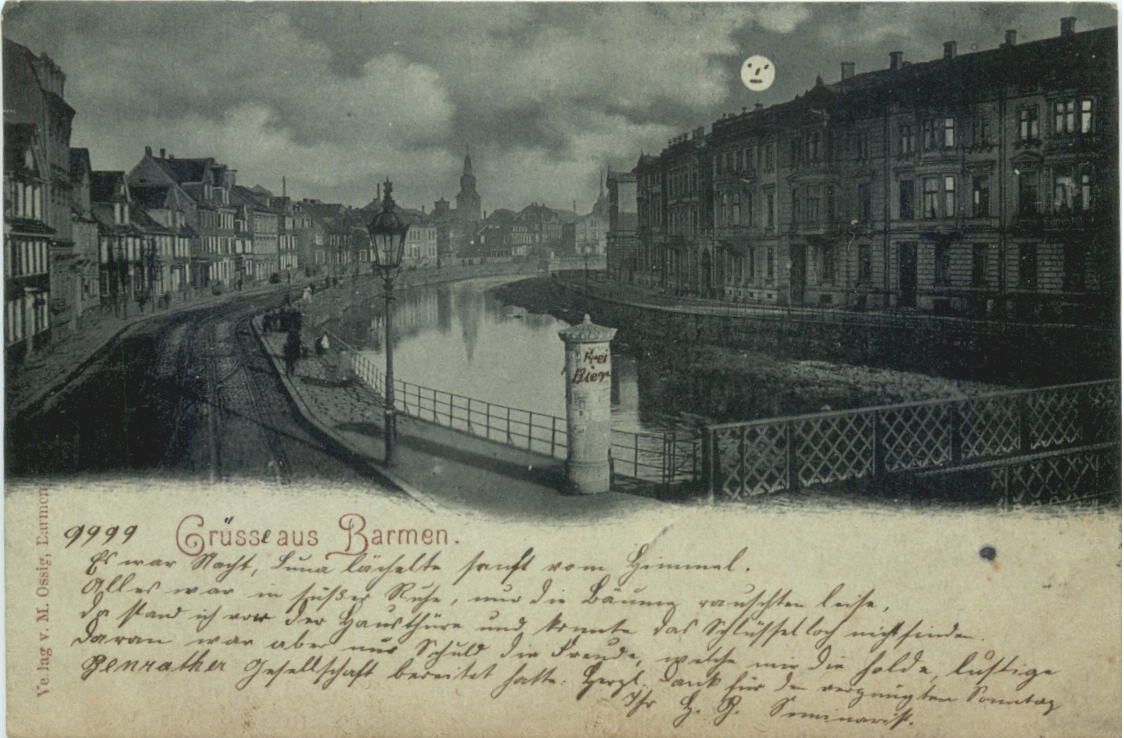 Frei
Bier
9999
Grüsse aus Barmen.
Es war Nacht, Luna lächelte sanft vom Himmel.
Alles war in süßer Ruhe, nur die Bäume rauschten leise,
da stand ich vor der Hausthüre und konnte das Schlüsselloch nicht finden.
Daran war aber nur Schuld die Freude, welche mir die holde, lustige
Benrather Gesellschaft bereitet hatte. Herzl. Dank für den vergnügten Sonntag
Ihr H. B. Seminarist.
Verlag v. M. Ossig, Barmen